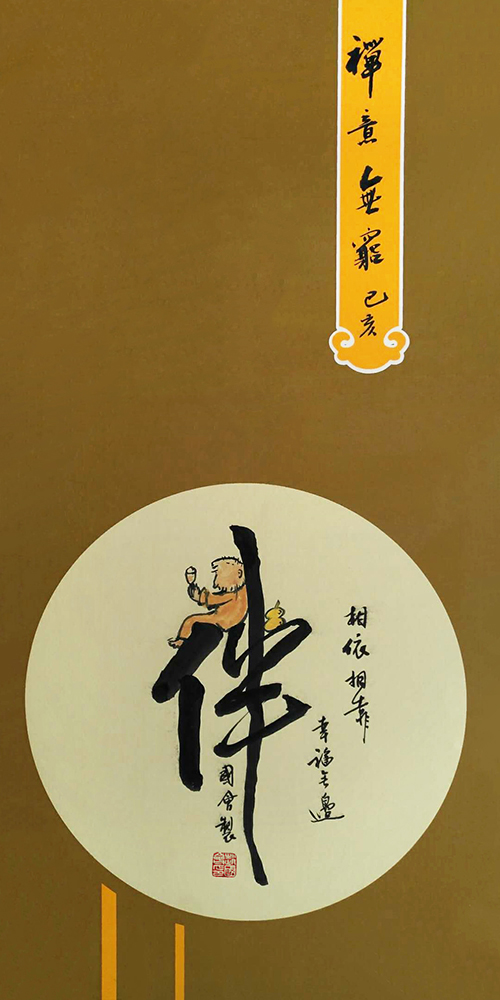 禪意無窮
己亥
伴
相依相靠
幸福無邊
國會製